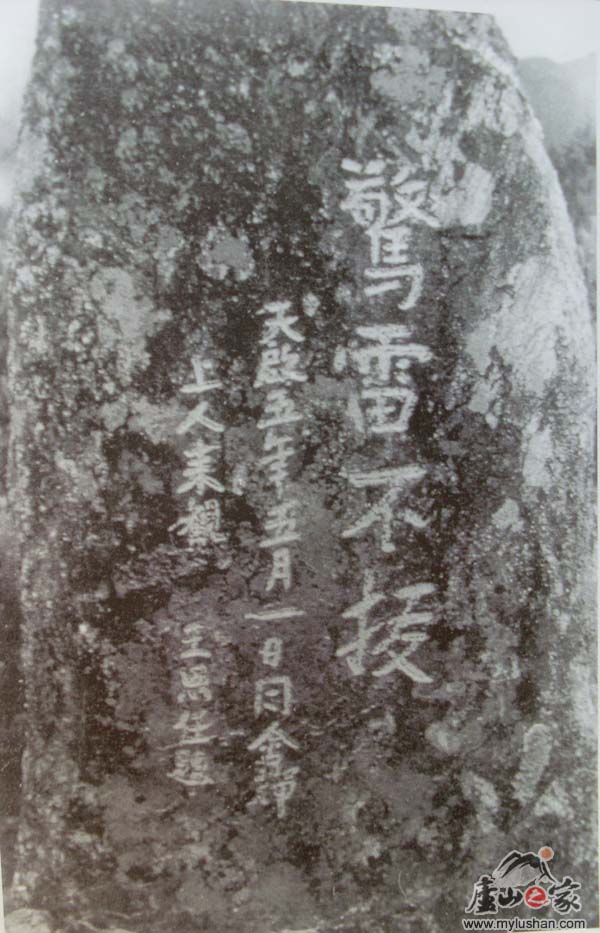 驚雷不授
天啟五年五月一日同
上人來觀 王思任題
廬山之家
www.mylushan.com